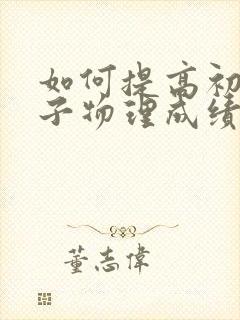 如何提高初
子物理成绩
董志偉